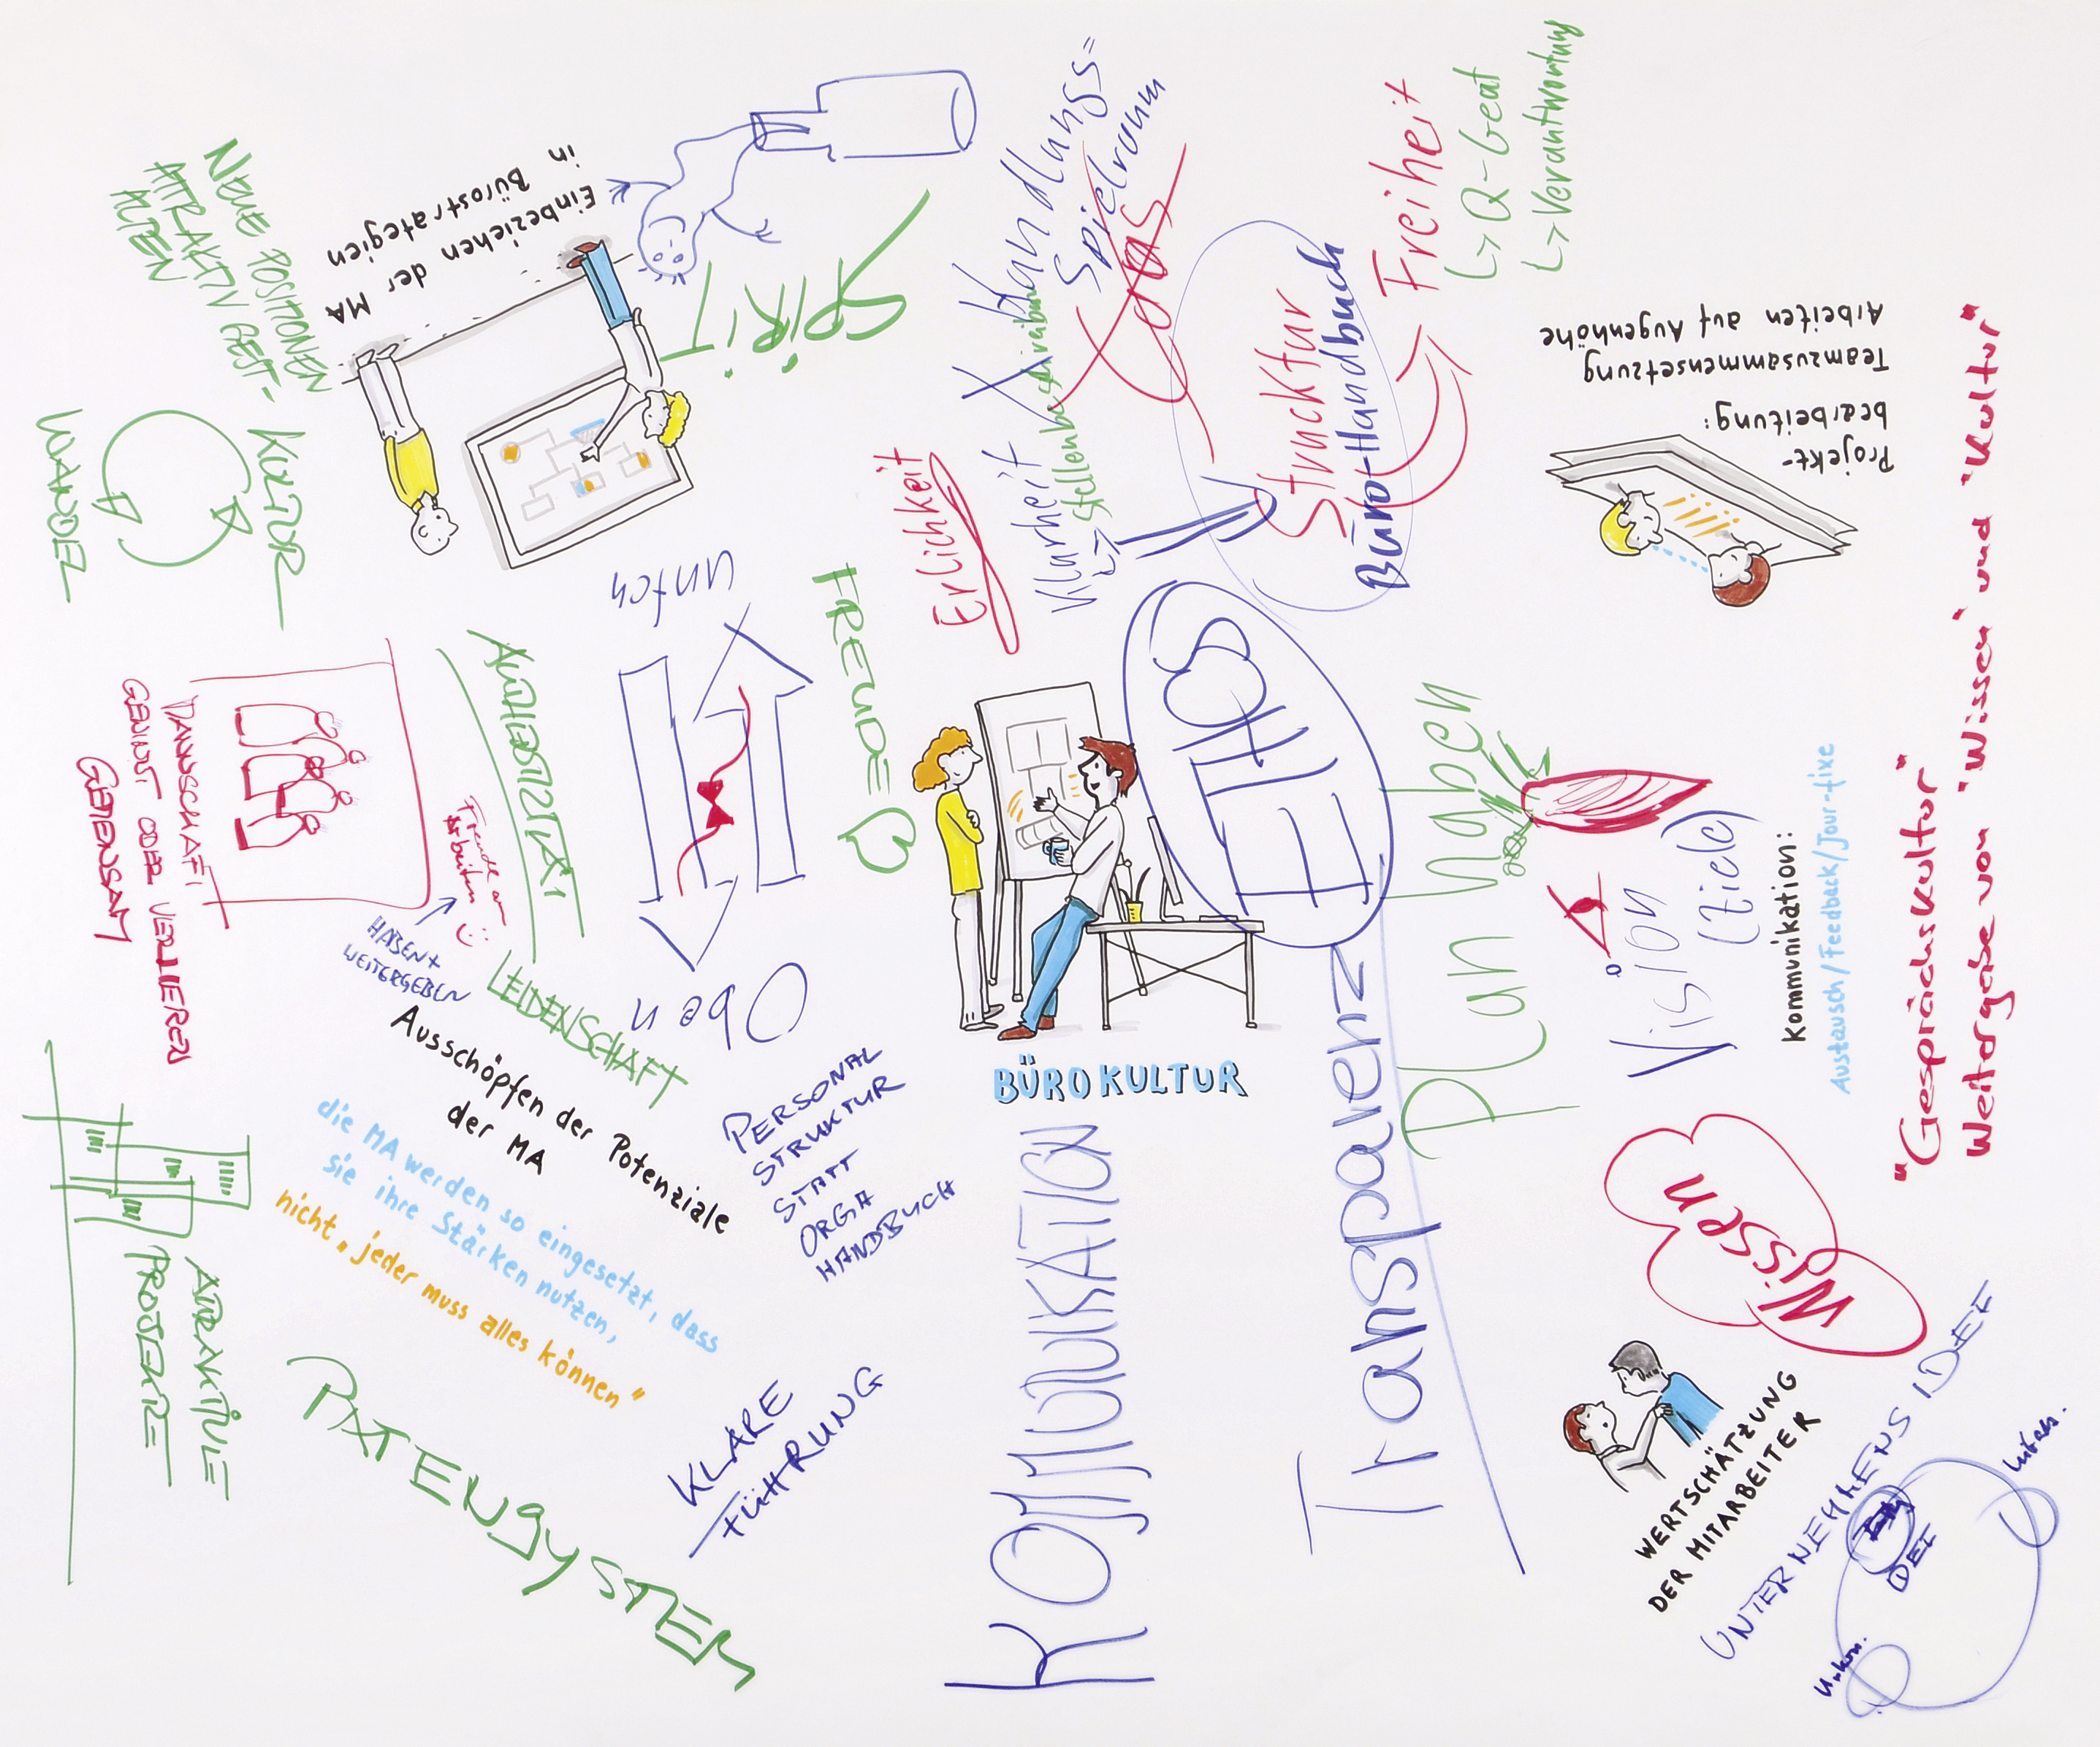 BÜROKULTUR
SPIRIT
Einbeziehen der MA
in Bürostrategien
NEUE POSITIONEN
ATTRAKTIV GEST-
ALTEN
KULTUR
WANDEL
MANNSCHAFT
GEWINNT ODER VERLIERT
GEMEINSAM
Freude am
Arbeiten
HABEN +
WEITERGEBEN
AUTHENTIZITÄT
LEIDENSCHAFT
unten
Oben
FREUDE
Ehrlichkeit
Klarheit
Stellenbeschreibung
Handlungs=
Spielraum
Chaos
Strucktur
Büro-Handbuch
Freiheit
↳ Q-beat
↳ Verantwortung
Projekt-
bearbeitung:
Teamzusammensetzung
Arbeiten auf Augenhöhe
"Gesprächskultur"
Weitergabe von 'Wissen' und "Kultur"
Kommunikation:
Austausch/Feedback/Jour-fixe
Vision
(Ziele)
Plan haben
Transparenz
KOMMUNIKATION
Wissen
WERTSCHÄTZUNG
DER MITARBEITER
UNTERNEHMENS IDEE
IDEE
PERSONAL
STRUKTUR
STATT
ORGA
HANDBUCH
KLARE
FÜHRUNG
Ausschöpfen der Potenziale
der MA
die MA werden so eingesetzt, dass
sie ihre Stärken nutzen,
nicht „jeder muss alles können"
PATENSYSTEM
ATTRAKTIVE
PROJEKTE